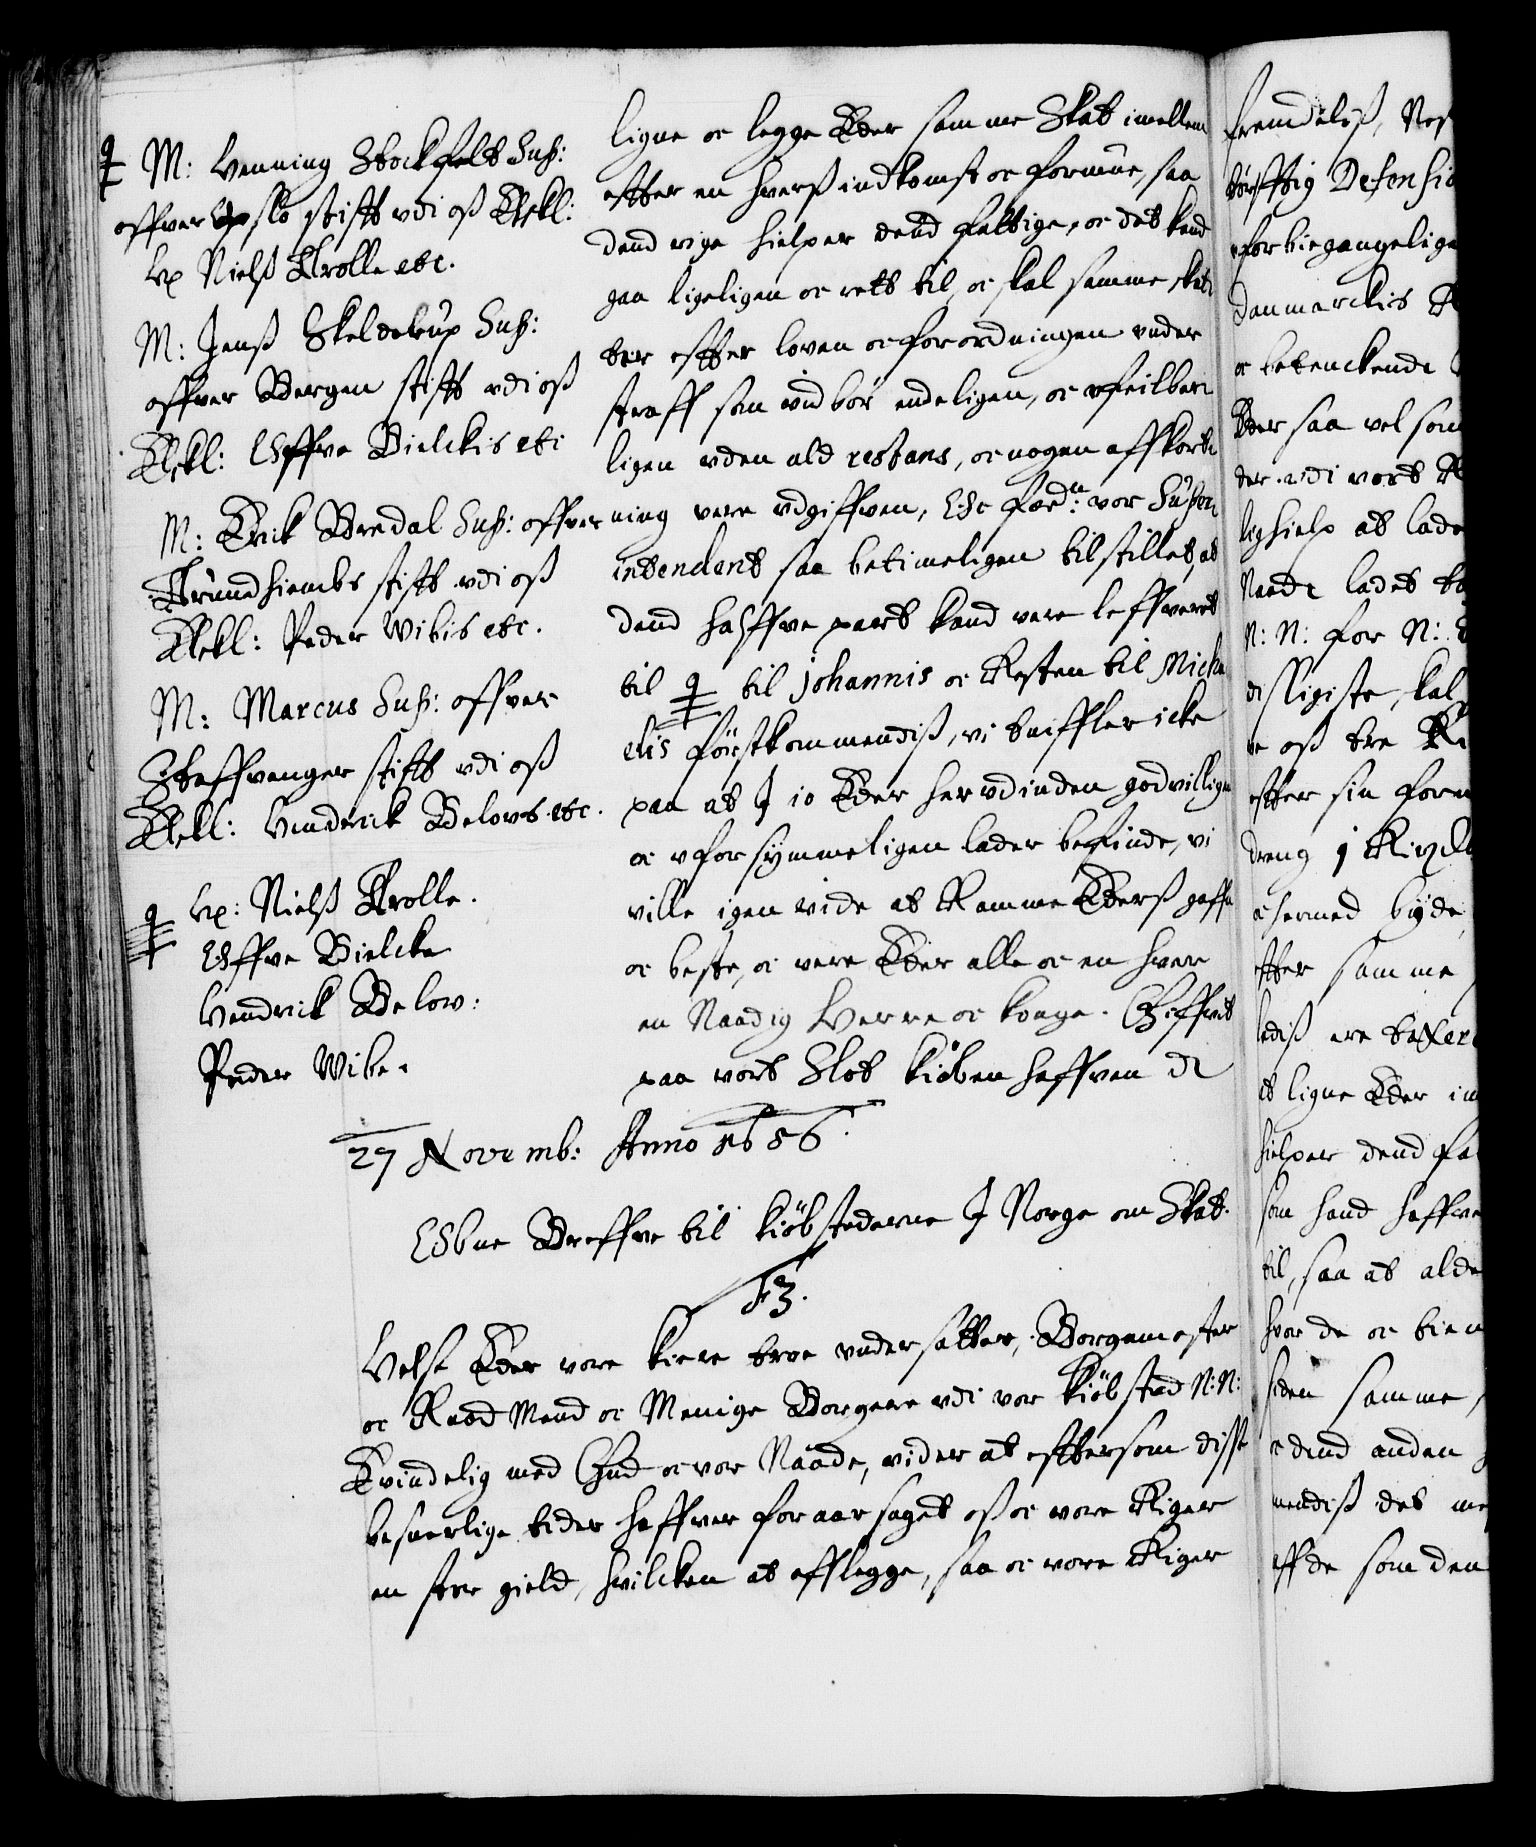 M: Henning Stockfled Sup:
offver Opslo stifft vdi oß Elskl:
Hr Nielß Trolle etc.
M: Jenß Skelderup Sup:
offver Bergen stifft vdi oß
Elskl: Offve Bielckis etc
M: Erick Bredal Sup: offver
Trundhiembs stifft vdi oß
Elskl: Peder Wibis etc.
M: Marcus Sup: offver
Staffvanger stifft vdi oß
Elskl: Hendrick Belovs etc.
Hr: Nielß Trolle.
Offve Bielcke
Hendrick Below:
Peder Wibe.
ligne oc legge Eder samme Skat imellem
effter en hverß indkomst oc formue, saa
dend rige hielper dend fattige, oc det kand
gaa ligeligen oc rett til, oc skal samme skatt
effter loven oc forordningen under
straff som ved bør endeligen, oc ufeilbar
ligen uden ald restans, oc nogen affkort
ning vere udgiffven, Oc for:ne vor Super
intendent saa betimeligen tilstillet, at
dend halffve part kand vere leffveret
til til Johannis oc Resten til Micha
elis førstkommendiß, vi tuiffler icke
paa at I io Eder herudinden godvilligen
oc uforsymmeligen lader befinde, vi
ville igen vide at Ramme Ederß gaffn
oc beste, oc vere Eder alle oc en hver
en Naadig Herre oc Konge. Giffvet
paa vort Slot Kiøbenhaffven d
27 Novemb: Anno 1656.
Obne Breffve til Kiøbstederne I Norge om Skat.
F3.
Helse Eder vore kiere troe undersatter, Borgemester
oc Raad Mend oc Menige Borgere udi vor Kiøbsted N: N:
Evindelig med Gud oc vor Naade, vider at effttersom disse
besuerlige tider haffver foraarsaget oß oc vore Riger
en stor gield, huilcken at afflegge, saa oc vore Riger
fremdeliß,
Defensio
forbiegangelige
Danmarckis
oc betenckende
Eder saa vel som
der udi vort
hielp at lade
Naade ladet
N: N: for N:
skal
oß
effter sin
dreng
oc hermed byde
effter samme
ere
at ligne Eder
hielper dend
som hand haffver
til, saa at
hvor de oc
siden samme
oc dend anden
mendiß det
som den